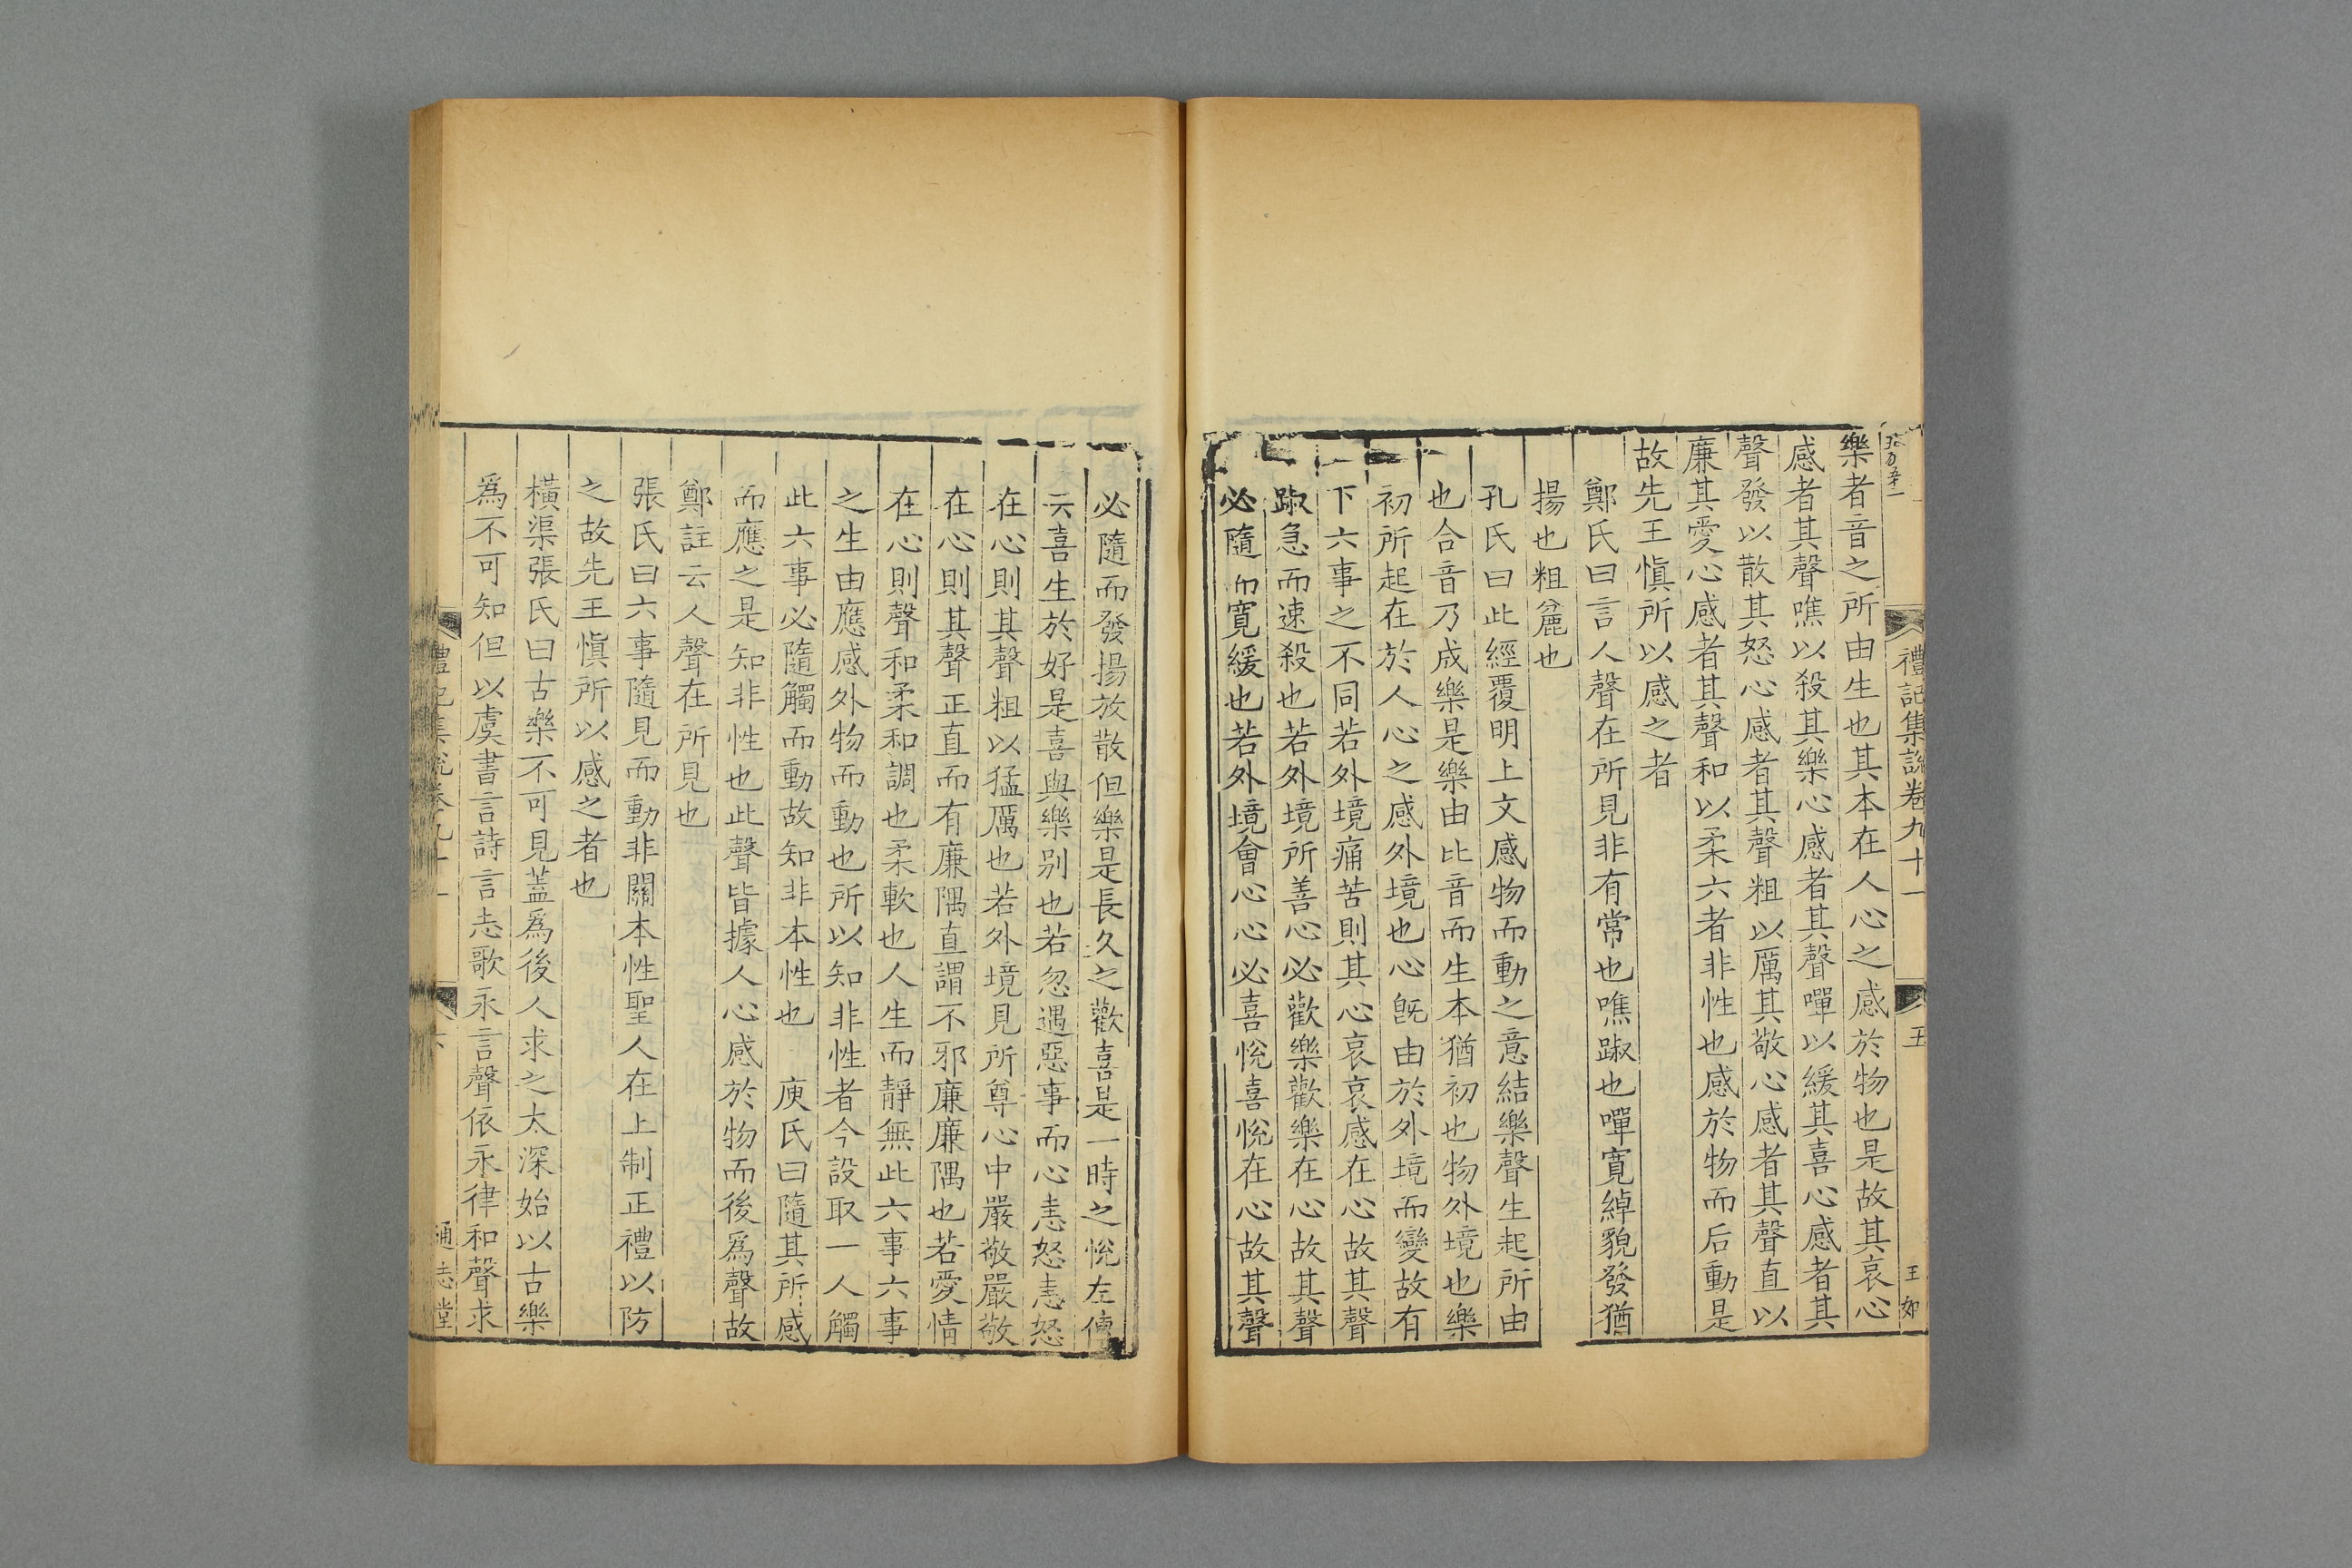 禮記集說卷九十一 五 王如
樂者音之所由生也其本在人心之感於物也是故其哀心
感者其聲噍以殺其樂心感者其聲嘽以緩其喜心感者其
聲發以散其怒心感者其聲粗以厲其敬心感者其聲直以
廉其愛心感者其聲和以柔六者非性也感於物而后動是
故先王愼所以感之者
鄭氏曰言人聲在所見非有常也噍踧也嘽寬綽貌發猶
揚也粗麄也
孔氏曰此經覆明上文感物而動之意結樂聲生起所由
也合音乃成樂是樂由比音而生本猶初也物外境也樂
初所起在於人心之感外境也心旣由於外境而變故有
下六事之不同若外境痛苦則其心哀哀感在心故其聲
踧急而速殺也若外境所善心必歡樂歡樂在心故其聲
必隨而寛緩也若外境會心心必喜悅喜悅在心故其聲
必隨而發揚放散但樂是長久之歡喜是一時之悅左傳
云喜生於好是喜與樂別也若忽遇惡事而心恚怒恚怒
在心則其聲粗以猛厲也若外境見所尊心中嚴敬嚴敬
在心則其聲正直而有廉隅直謂不邪廉廉隅也若愛情
在心則聲和柔和調也柔軟也人生而靜無此六事六事
之生由應感外物而動也所以知非性者今設取一人觸
此六事必隨觸而動故知非本性也 庾氏曰隨其所感
而應之是知非性也此聲皆據人心感於物而後爲聲故
鄭註云人聲在所見也
張氏曰六事隨見而動非關本性聖人在上制正禮以防
之故先王愼所以感之者也
橫渠張氏曰古樂不可見蓋爲後人求之太深始以古樂
爲不可知但以虞書言詩言志歌永言聲依永律和聲求
禮記集說卷九十一 六 通志堂